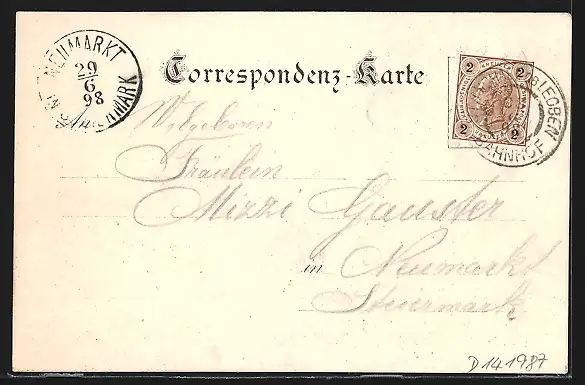 NEUMARKT
29
6
98
Correspondenz-Karte
2 2
2 2
LEOBEN
BAHNHOF
Wolgeboren
Fräulein
Mizzi Gauster
in Neumarkt
Steiermark
D 14 1987